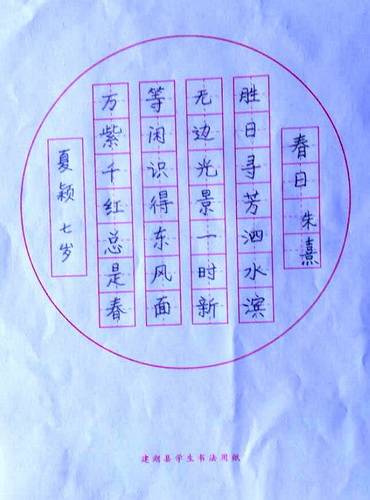 春日 朱熹
胜日寻芳泗水滨
无边光景一时新
等闲识得东风面
万紫千红总是春
夏颖 七岁
建湖县学生书法用纸